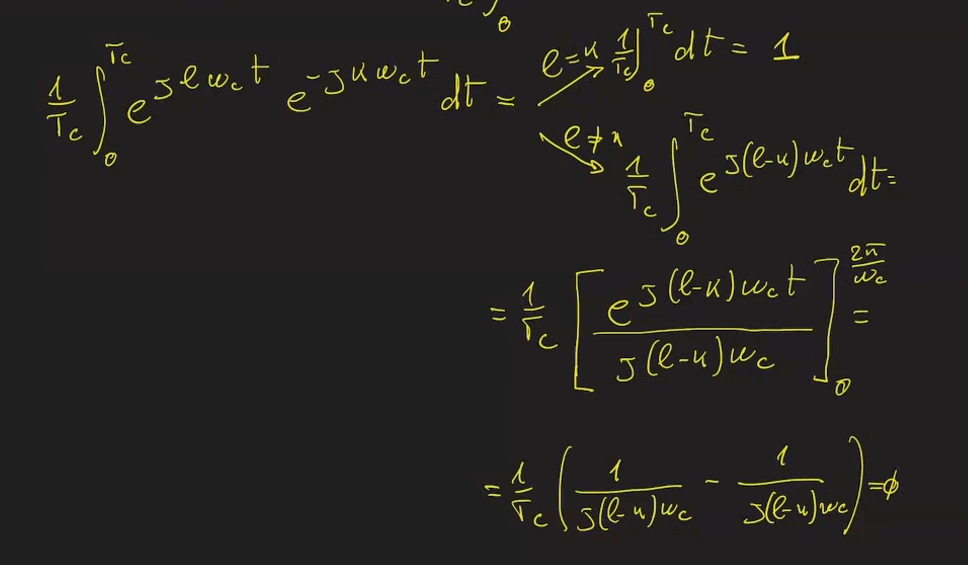 1/T_c ∫_0^{T_c} e^{jℓω_c t} e^{-jkω_c t} dt =
ℓ=k 1/T_c ∫_0^{T_c} dt = 1
ℓ≠k 1/T_c ∫_0^{T_c} e^{j(ℓ-k)ω_c t} dt =
= 1/T_c [ e^{j(ℓ-k)ω_c t} / j(ℓ-k)ω_c ]_0^{2π/ω_c} =
= 1/T_c ( 1/j(ℓ-k)ω_c - 1/j(ℓ-k)ω_c ) = ϕ